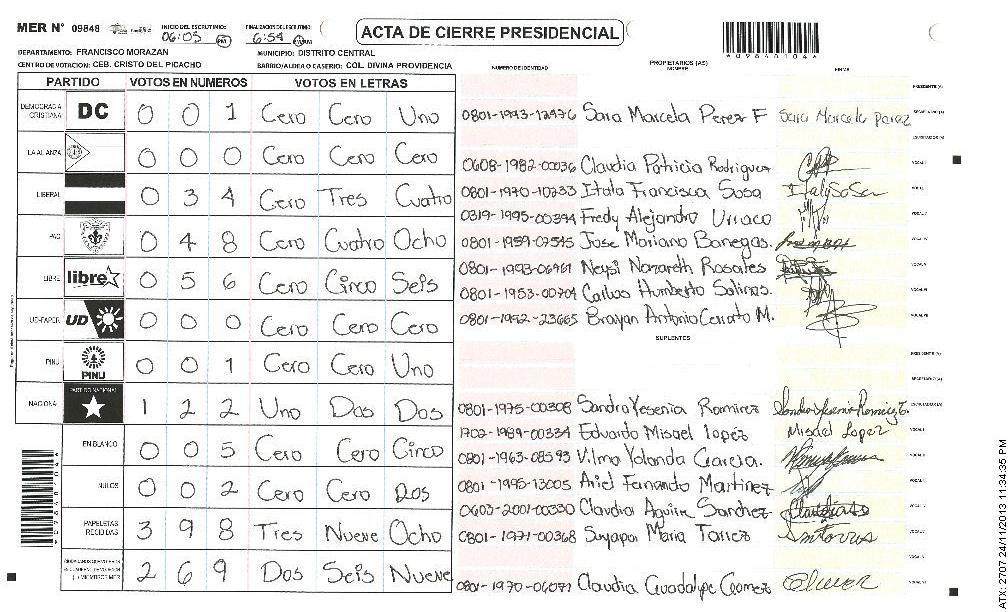 MER N° 09848
INICIO DEL ESCRUTINIO: 06:05 PM
FINALIZACION DEL ESCRUTINIO: 6:54
ACTA DE CIERRE PRESIDENCIAL
*09848104*
DEPARTAMENTO: FRANCISCO MORAZAN
MUNICIPIO: DISTRITO CENTRAL
CENTRO DE VOTACION: CEB. CRISTO DEL PICACHO
BARRIO/ALDEA O CASERIO: COL. DIVINA PROVIDENCIA
PARTIDO VOTOS EN NÚMEROS VOTOS EN LETRAS
DEMOCRACIA CRISTIANA DC 0 0 1 Cero Cero Uno
LA ALIANZA 0 0 0 Cero Cero Cero
LIBERAL 0 3 4 Cero Tres Cuatro
PAC 0 4 8 Cero Cuatro Ocho
LIBRE libre 0 5 6 Cero Cinco Seis
UD-FAPER UD 0 0 0 Cero Cero Cero
PINU PINU 0 0 1 Cero Cero Uno
NACIONAL PARTIDO NACIONAL 1 2 2 Uno Dos Dos
EN BLANCO 0 0 5 Cero Cero Cinco
NULOS 0 0 2 Cero Cero Dos
PAPELETAS RECIBIDAS 3 9 8 Tres Nueve Ocho
2 6 9 Dos Seis Nueve
NUMERO DE IDENTIDAD PROPIETARIOS (AS) NOMBRE FIRMA
PRESIDENTE (A)
0801-1993-12976 Sara Marcela Perez F Sara Marcela perez SECRETARIO (A)
ESCRUTADOR (A)
0608-1982-00036 Claudia Patricia Rodriguez VOCAL I
0801-1970-10233 Itala Francisca Sosa Italy Sosa
0319-1995-00394 Fredy Alejandro Urraco
0801-1959-07545 Jose Mariano Banegas.
0801-1993-06961 Neysi Nazareth Rosales
0801-1953-00704 Carlos Humberto Salinas.
0801-1992-23665 Brayan Antonio Cerrato M.
SUPLENTES
PRESIDENTE (A)
SECRETARIO (A)
0801-1975-00308 Sandra Yesenia Ramirez ESCRUTADOR (A)
1702-1989-00334 Eduardo Misael lopez Misael Lopez
0801-1963-08593 Vilma Yolanda Garcia.
0801-1995-13005 Ariel Fernando Martinez
0603-2001-00330 Claudia Aguire Sanchez
0801-1971-00368 Suyapa Maria Torrez
0801-1970-06071 Claudia Guadalpe Gomez
ATX 2707 24/11/2013 11:34:35 PM